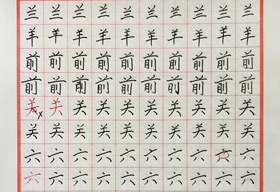 兰兰兰兰兰兰兰兰兰兰
羊羊羊羊羊羊羊羊羊羊
前前前前前前前前前前
前前前前前前前前前前
关关关关关关关关关关
关关关关关关关关关关
六六六六六六六六六六
六六六六六六六六六六